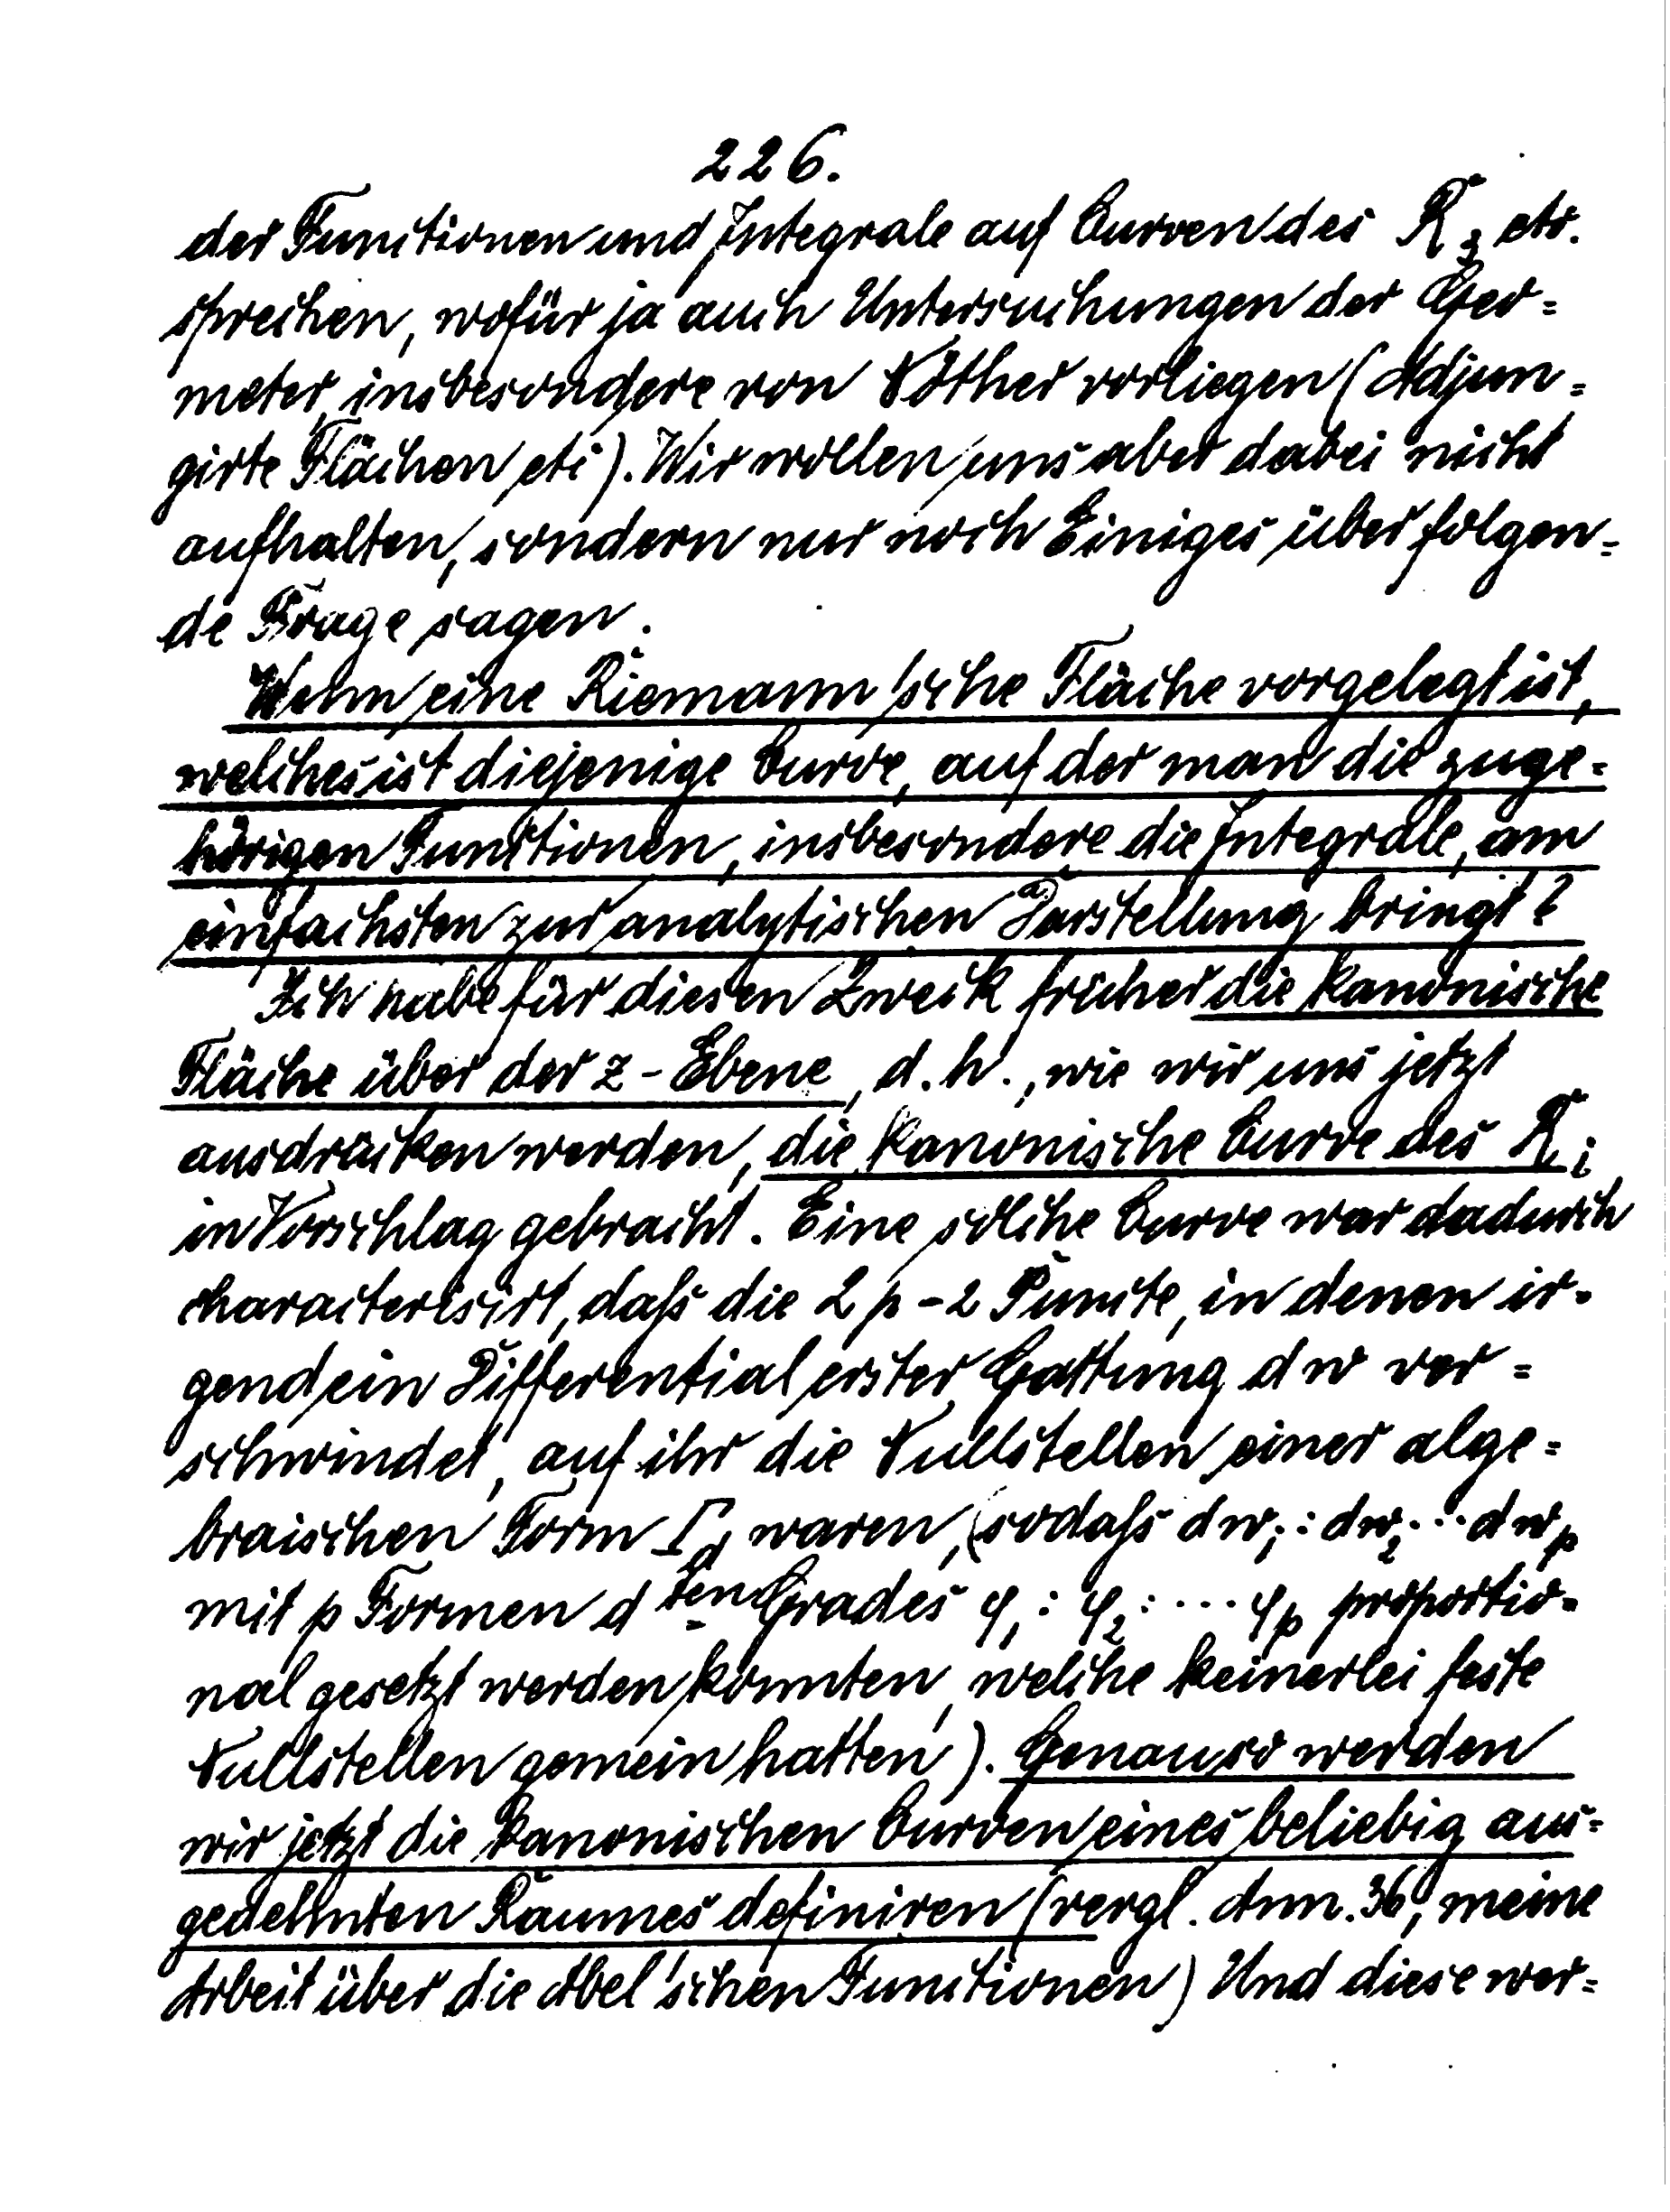 226.
der Functionen und Integrale auf Curven des R₃ etc.
sprechen, wofür ja auch Untersuchungen der Geo=
meter, insbesondere von Nöther vorliegen (Adjun=
girte Flächen etc). Wir wollen uns aber dabei nicht
aufhalten, sondern nur noch Einiges über folgen=
de Frage sagen.
Wenn eine Riemann'sche Fläche vorgelegt ist,
welches ist diejenige Curve, auf der man die zuge=
hörigen Functionen, insbesondere die Integrale, am
einfachsten zur analytischen Darstellung bringt?
Ich habe für diesen Zweck früher die kanonische
Fläche über der z-Ebene, d.h., wie wir uns jetzt
ausdrücken werden, die kanonische Curve des R₁;
in Vorschlag gebracht. Eine solche Curve war dadurch
characterisirt, daß die 2p-2 Puncte, in denen ir=
gend ein Differential erster Gattung dw ver=
schwindet, auf ihr die Nullstellen einer alge=
braischen Form Γ_d waren, (sodaß dw₁ : dw₂ ... dw_p
mit p Formen d ten Grades φ₁ : φ₂ : ... φ_p proportio=
nal gesetzt werden konnten, welche keinerlei feste
Nullstellen gemein hatten). Genau so werden
wir jetzt die kanonischen Curven eines beliebig aus=
gedehnten Raumes definiren (vergl. Ann. 36, meine
Arbeit über die Abel'schen Functionen) Und diese wer=